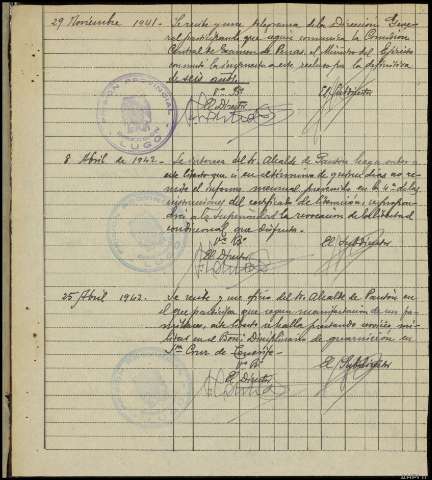 29 Noviembre 1941.- Se recibe y une telegrama de la Dirección Gene-
ral participando que según comunica la Comisión
Central de Examen de Penas, el Ministro del Ejército
conmutó la impuesta a este recluso por la definitiva
de seis años.
Vº Bº
El Director El Subdirector
PRISION PROVINCIAL
LUGO
8 Abril de 1942.- Se interesa del Sr. Alcalde de Pantón haga saber a
este liberto que si en el término de quince días no re-
mite el informe mensual prevenido en la 4ª de las
instrucciones del certificado de liberación, se propon-
drá a la Superioridad la revocación de la libertad
condicional que disfruta.
Vº Bº
El Director El Subdirector
25 Abril 1942.- Se recibe y une oficio del Sr. Alcalde de Pantón en
el que participa que según manifestación de sus fa-
miliares, este liberto se halla prestando servicio mi-
litar en el Bon. Disciplinario de guarnición en
Sta Cruz de Tenerife.-
Vº Bº
El Director El Subdirector